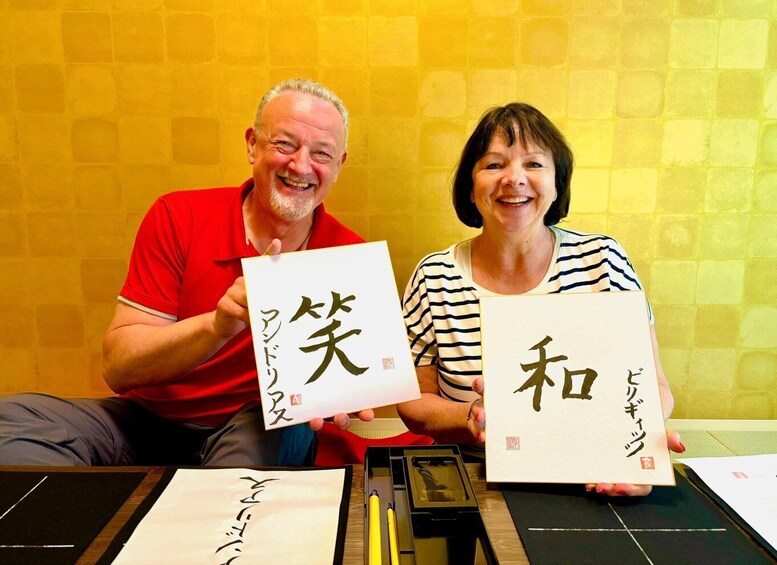 笑
アンドリアス
和
ビリギィッツ